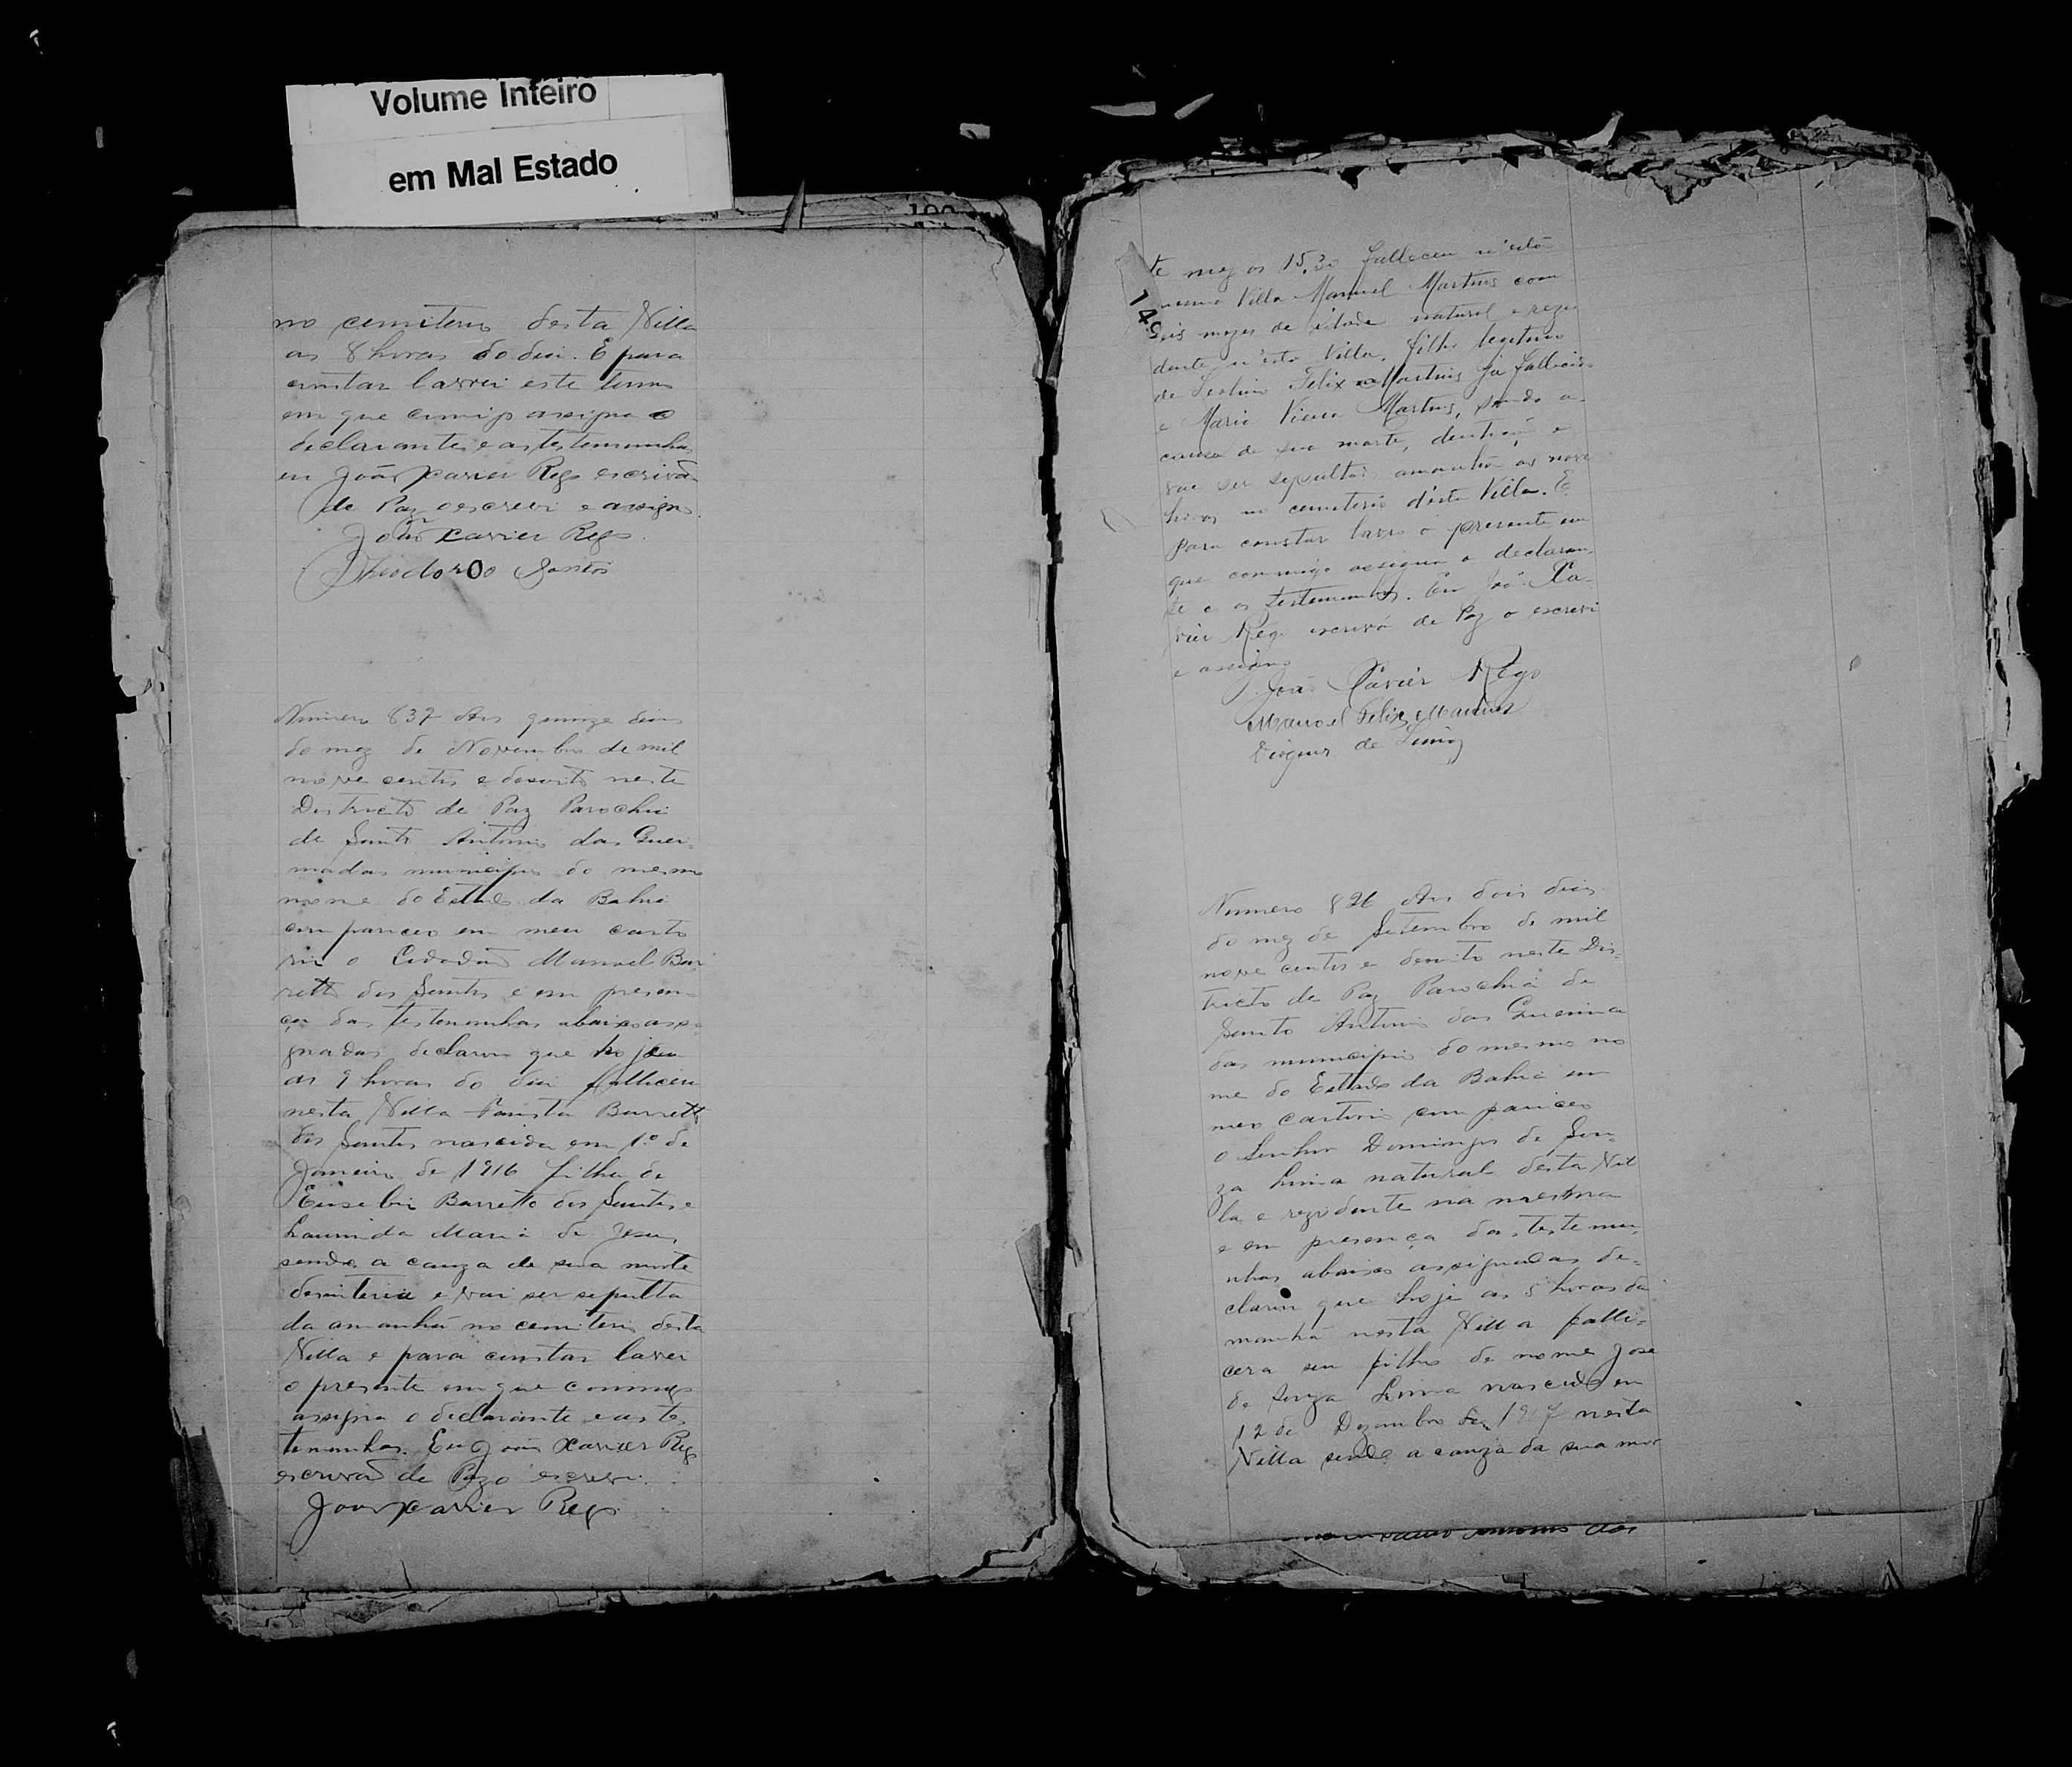 Volume Inteiro
em Mal Estado
no cemiterio desta Villa
as 8 horas do dia. E para
constar lavrei este termo
em que comigo assigna o
declarante e as testemunhas
eu João Xavier Rego escrivão
de Paz o escrevi e assigno.
João Xavier Rego.
Theodoro Santos
Numero 837 Aos quinze dias
do mez de Novembro de mil
nove centos e desoito neste
Districto de Paz Parochia
de Santo Antonio das Quei-
madas municipio do mesmo
nome do Estado da Bahia
compareceo em meu carto
rio o Cidadão Manoel Bar
retto dos Santos e em presen-
ça das testemunhas abaixo assi-
gnadas declarou que hoje
as 9 horas do dia falleceu
nesta Villa Barretto
dos Santos nascida em 1º de
Janeiro de 1916 filha de
Eusebio Barretto dos Santos e
Laurinda Maria de Jesus
sendo a cauza de sua morte
desinteria e vai ser sepulta
da amanhã no cemiterio desta
Villa e para constar lavrei
o presente em que commigo
assigna o declarante e as tes
temunhas. Eu João Xavier Rego
escrivão de Paz o escrevi.
João Xavier Rego
149
te mez as 15,30 falleceu n'esta
mesma Villa Manuel Martins com
seis mezes de idade natural e rezi
dente n'esta Villa, filho legitimo
de Felix Martins já fallecido
e Maria Vieira Martins, sendo a
causa de sua morte, dentição e
vae ser sepultado amanhã as nove
horas no cemiterio d'esta Villa. E
para constar lavro o presente em
que commigo assigna o declaran
te e as testemunhas. Eu João Xa-
vier Rego escrivão de Paz o escrevi
e assigno
João Xavier Rego
Manoel Felix Martins
de
Numero 826 Aos dois dias
do mez de Setembro de mil
nove centos e desoito neste Dis-
tricto de Paz Parochia de
Santo Antonio das Queima
das municipio do mesmo no
me do Estado da Bahia em
meo cartorio compareceo
o Senhor Domingos de Sou-
za Lima natural desta Vil
la e rezidente na mesma
e em presença das testemu-
nhas abaixo assignadas de-
clarou que hoje as 5 horas da
manhã nesta Villa falle-
cera seu filho de nome José
de Souza Lima nascido em
12 de Dezembro de 1917 nesta
Villa sendo a cauza da sua mor
Santo Antonio das